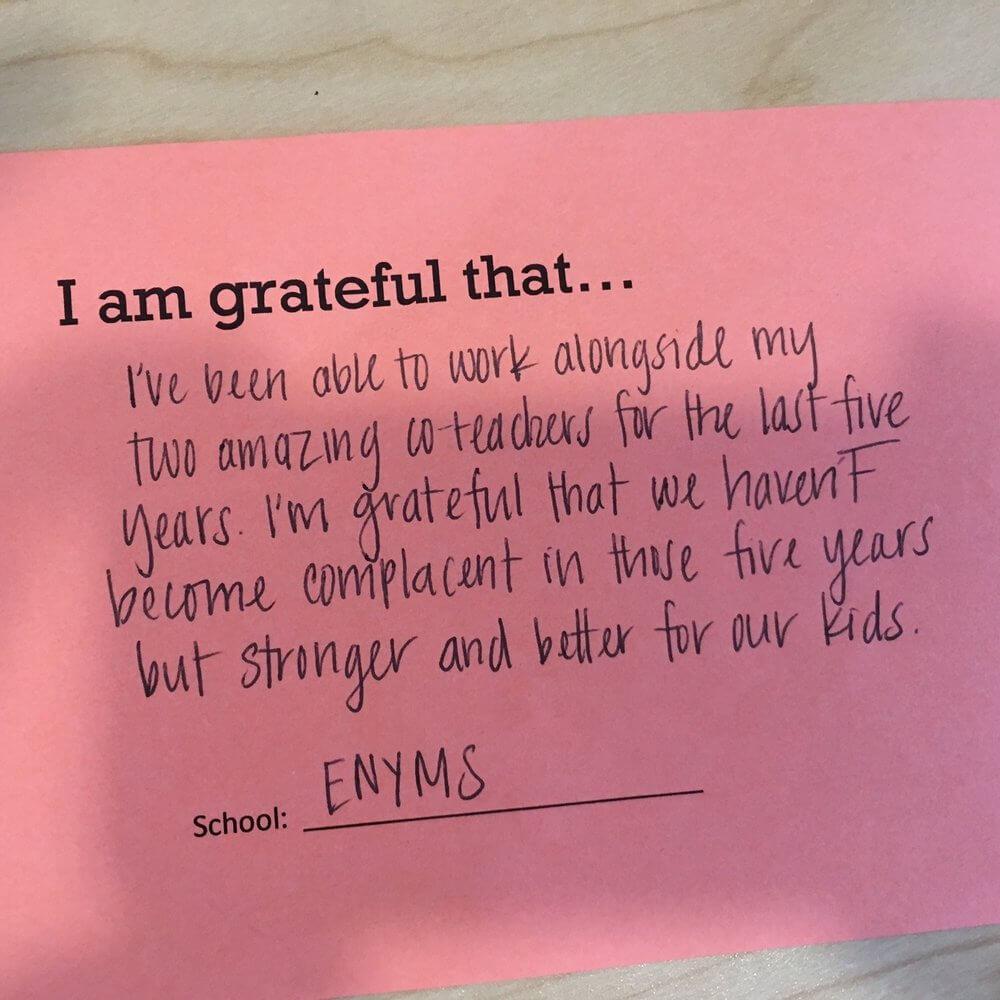 I am grateful that...
I've been able to work alongside my
two amazing co-teachers for the last five
years. I'm grateful that we haven't
become complacent in those five years
but stronger and better for our kids.
School: ENYMS